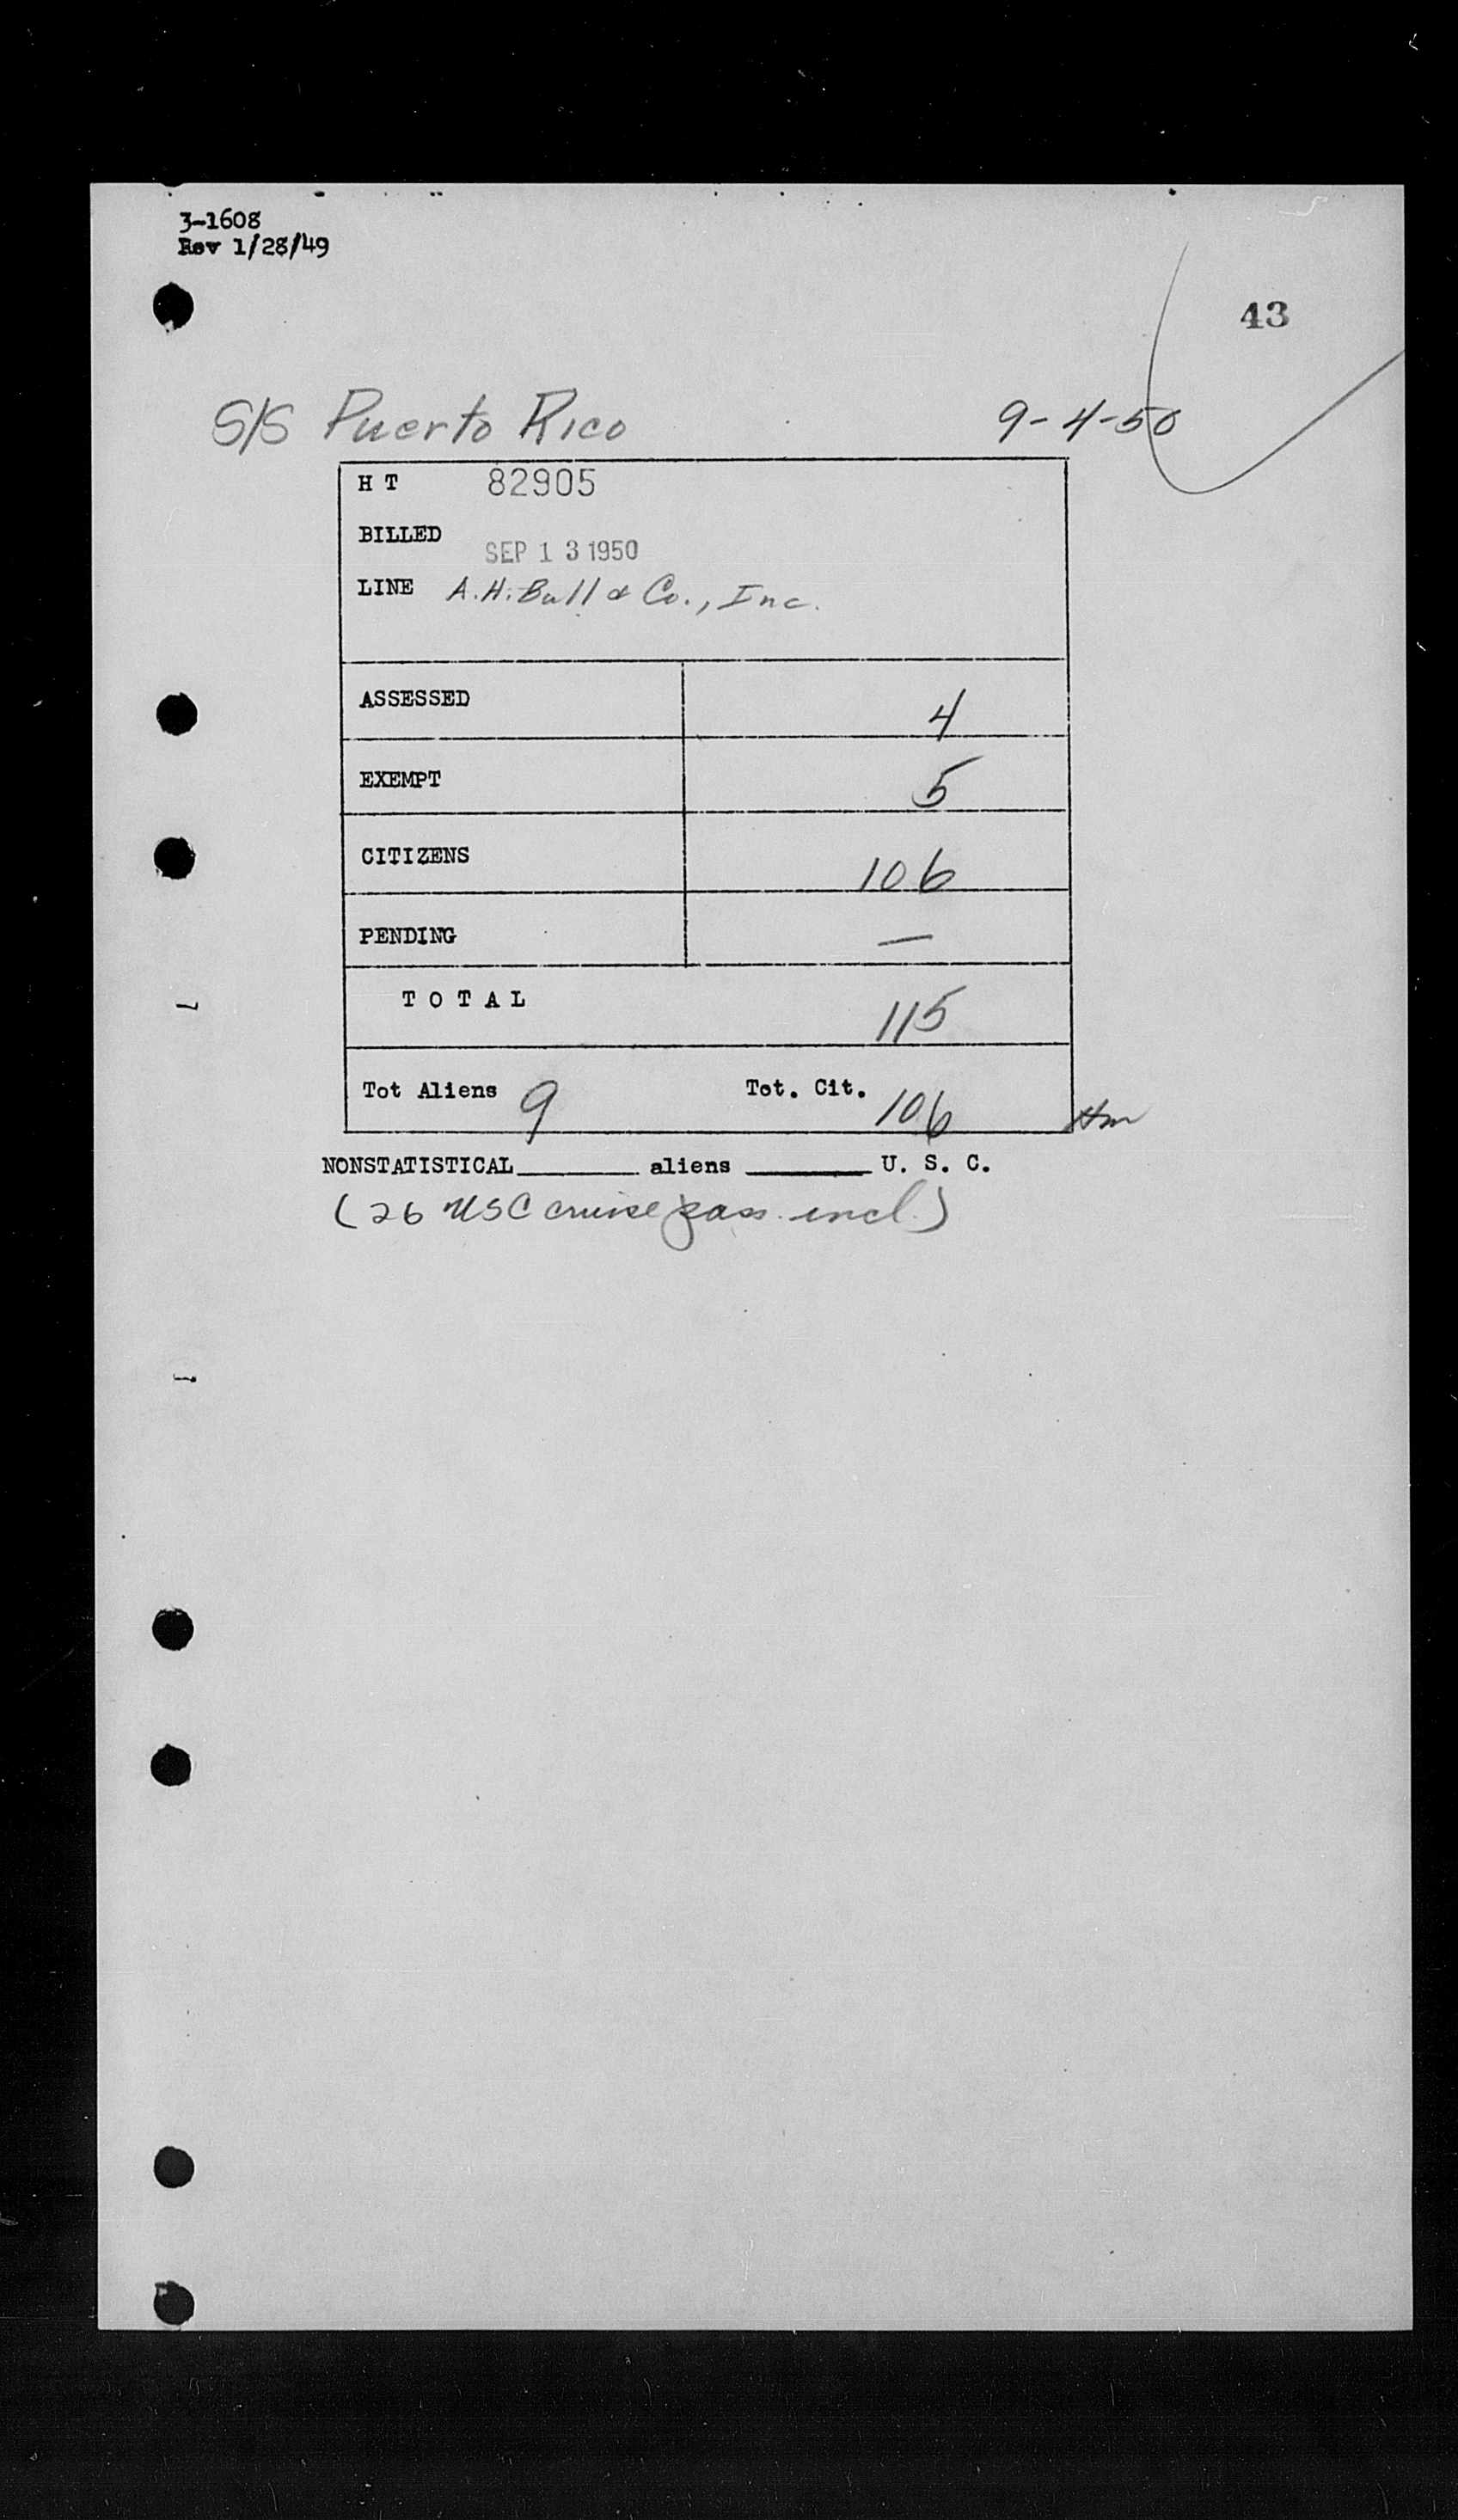 3-1608
Rev 1/28/49
43
S/S Puerto Rico 9-4-50
H T 82905
BILLED SEP 13 1950
LINE A.H. Bull & Co., Inc.
ASSESSED 4
EXEMPT 5
CITIZENS 106
PENDING —
T O T A L 115
Tot Aliens 9 Tot. Cit. 106
NONSTATISTICAL________ aliens ________ U. S. C.
(26 USC cruise pass. incl.)